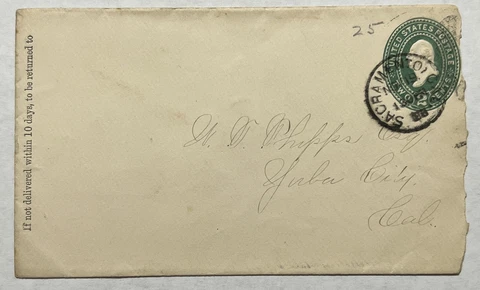 25 -
UNITED STATES POSTAGE
TWO 2 CENTS
SACRAMENTO
W. T. Phipps Esq.
Yuba City.
Cal.
If not delivered within 10 days, to be returned to